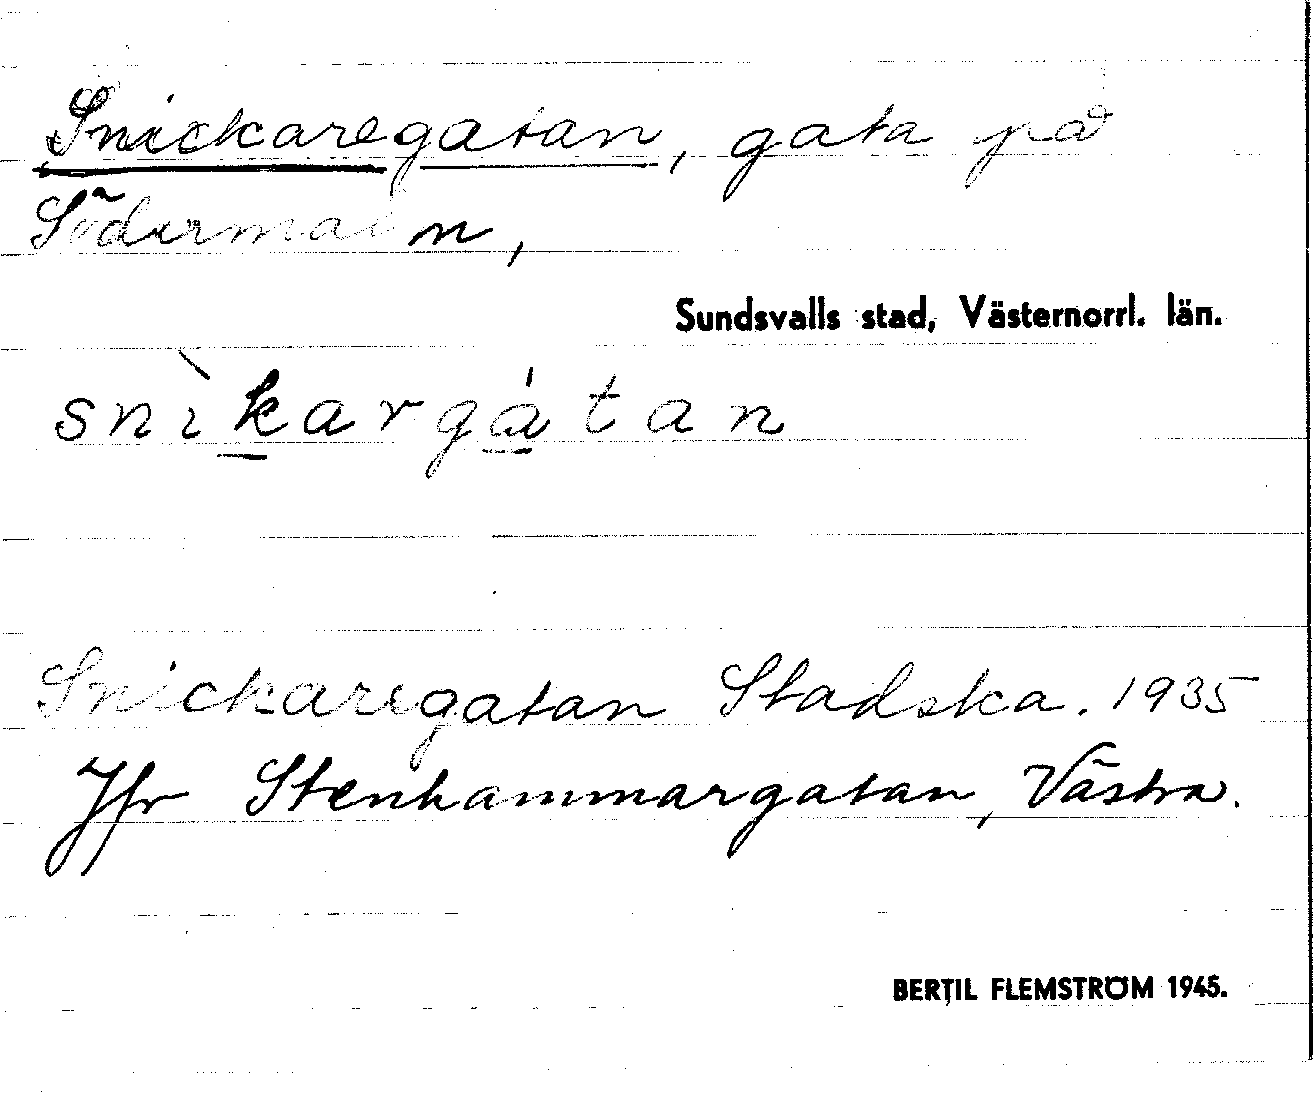 Snickaregatan, gata på
Södermalm,
Sundsvalls stad, Västernorrl. län.
snìkargátan
Snickaregatan Stadska. 1935
Jfr Stenhammargatan, Västra.
BERTIL FLEMSTRÖM 1945.